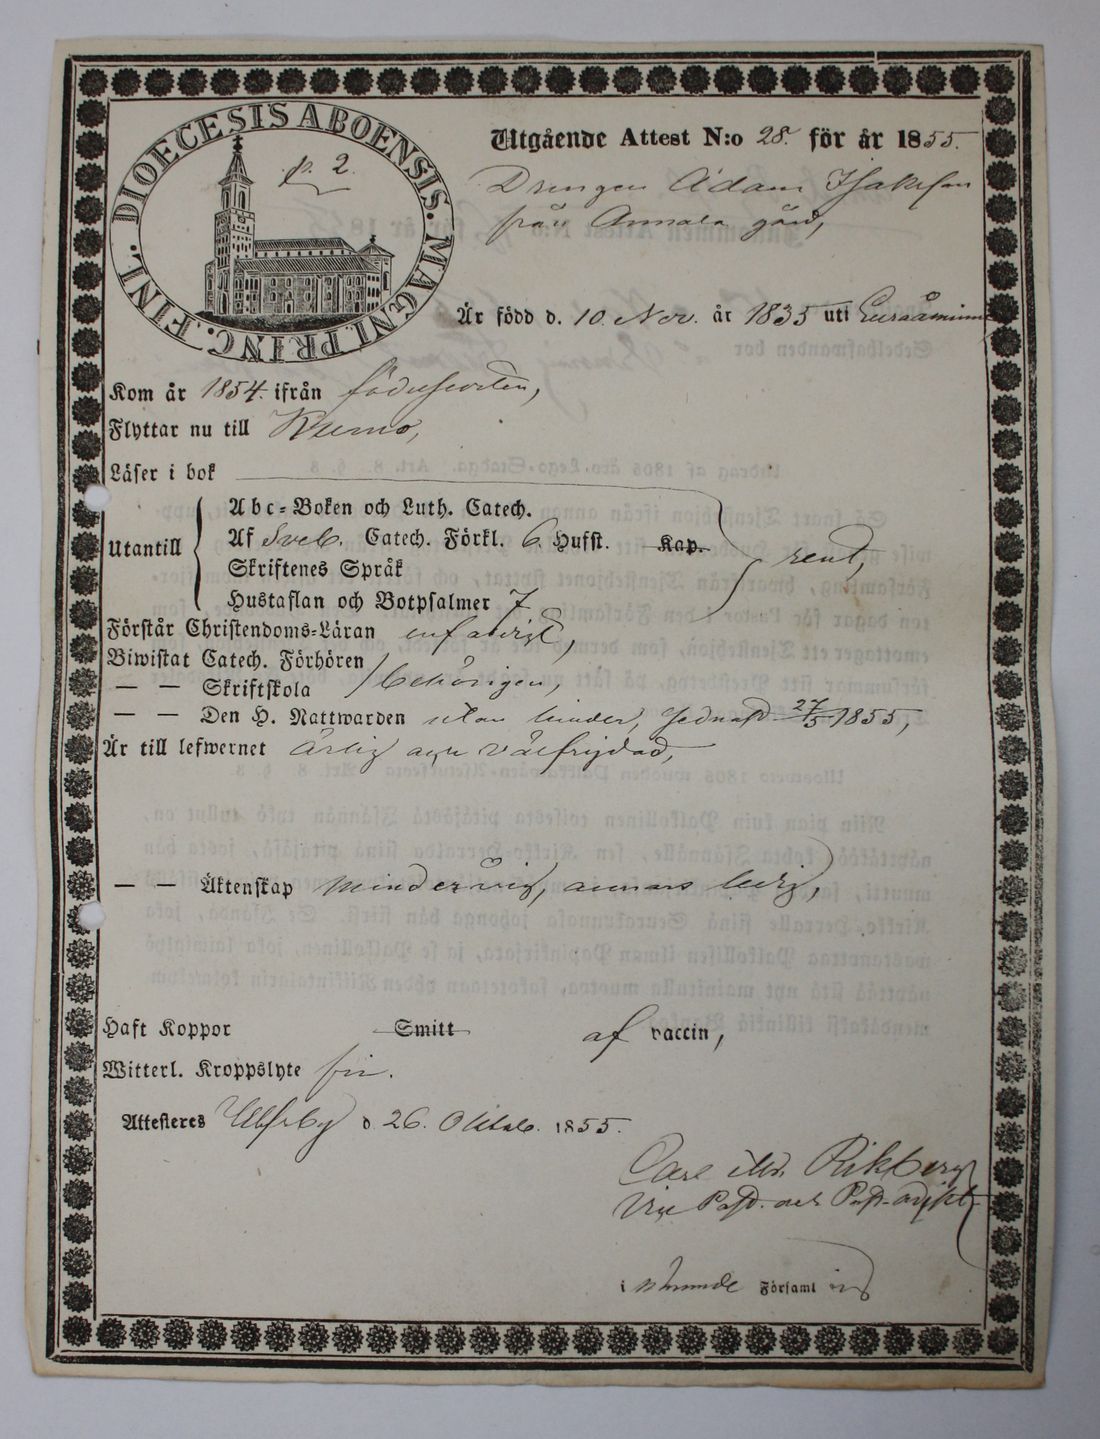 DIOECESIS ABOENSIS. MAGNI PRINC. FINL.
p. 2.
Utgående Attest N:o 28. för år 1855.
Drengen Adam Isaksson
från Annala gård,
Är född d. 10. Nov. år 1835 uti Euraåminne
Kom år 1854. ifrån födelseorten,
Flyttar nu till Kumo,
Läser i bok
Utantill
Abc-Boken och Luth. Catech.
Af Sveb. Catech. Förkl. 6 Hufst. Kap.
Skriftenes Språk
Hustaflan och Botpsalmer 7
rent,
Förstår Christendoms-Läran enfaldigt,
Biwistat Catech. Förhören
— — Skriftskola behörigen,
— — Den H. Nattwarden utan hinder, sednast 27/5 1855,
Är till lefwernet ärlig och välfrejdad,
— — Äktenskap minderårig, annars ledig,
Haft Koppor Smitt af vaccin,
Witterl. Kroppslyte fri.
Attesteres Ulfsby d. 26. Octob. 1855.
Carl Rikberg
Vice Past. och Past. adjkt
i Församl